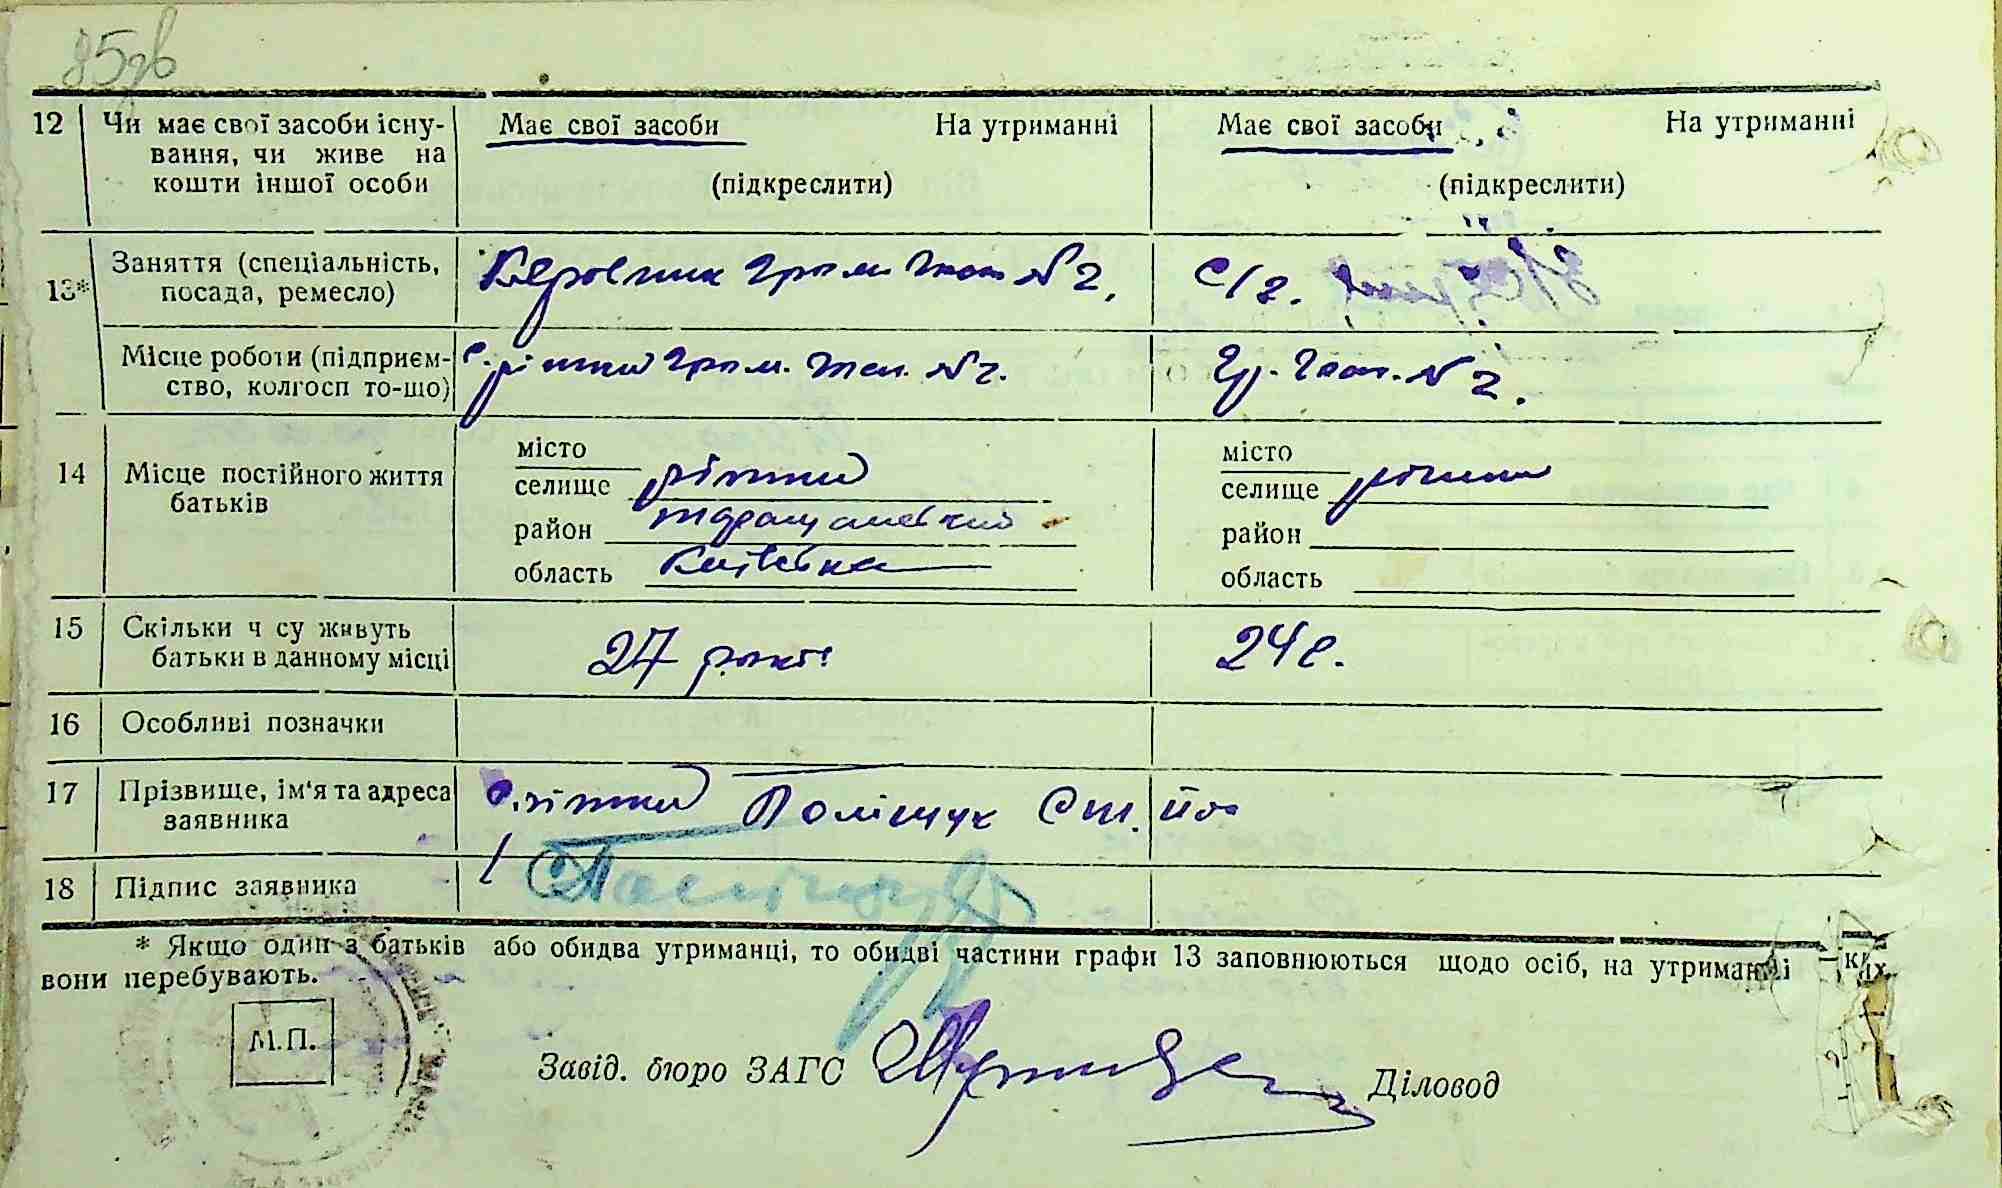 12 Чи має свої засоби існу-
вання, чи живе на
кошти іншої особи
Має свої засоби На утриманні
(підкреслити)
Має свої засоби На утриманні
(підкреслити)
13* Заняття (спеціальність,
посада, ремесло)
Керовник гром. № 2,
С/г.
Місце роботи (підприєм-
ство, колгосп то-що)
гром. № 2.
№ 2.
14 Місце постійного життя
батьків
місто
селище ріжки
район таращанский
область Київська
місто
селище ріжки
район
область
15 Скільки ч су живуть
батьки в данному місці
27 років
24 р.
16 Особливі позначки
17 Прізвище, ім'я та адреса
заявника
с. ріжки Поліщук Ст. Йос
18 Підпис заявника
Поліщук
* Якщо один з батьків або обидва утриманці, то обидві частини графи 13 заповнюються щодо осіб, на утриманні яких
вони перебувають.
М.П.
Завід. бюро ЗАГС
Діловод